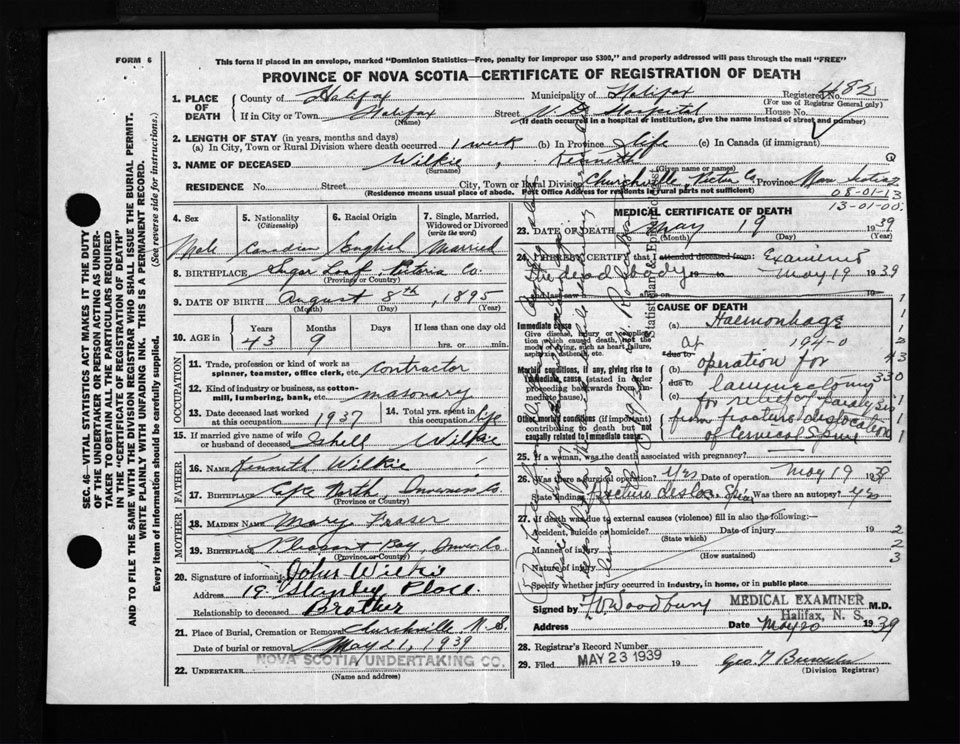 FORM 6
This form if placed in an envelope, marked "Dominion Statistics—Free, penalty for improper use $300," and properly addressed will pass through the mail "FREE"
PROVINCE OF NOVA SCOTIA—CERTIFICATE OF REGISTRATION OF DEATH
1. PLACE OF DEATH
County of Halifax Municipality of Halifax Registered No. 482
(For use of Registrar General only)
If in City or Town Halifax Street V. G. Hospital House No.
(Name) (If death occurred in a hospital or institution, give the name instead of street and number)
2. LENGTH OF STAY (in years, months and days)
(a) In City, Town or Rural Division where death occurred 1 week (b) In Province life (c) In Canada (if immigrant)
3. NAME OF DECEASED Wilkie, Kenneth
(Surname) (Given name or names)
RESIDENCE No. Street City, Town or Rural Division Churchville, Pictou Co Province Nova Scotia
(Residence means usual place of abode. Post Office Address for residents in rural parts not sufficient)
08-01-13
13-01-00
4. Sex Male
5. Nationality (Citizenship) Canadian
6. Racial Origin English
7. Single, Married, Widowed or Divorced (write the word) Married
8. BIRTHPLACE Sugar Loaf, Victoria Co.
(Province or Country)
9. DATE OF BIRTH August 8th, 1895
(Month) (Day) (Year)
10. AGE in Years 43 Months 9 Days If less than one day old hrs. or min.
OCCUPATION
11. Trade, profession or kind of work as spinner, teamster, office clerk, etc. Contractor
12. Kind of industry or business, as cotton-mill, lumbering, bank, etc. masonary
13. Date deceased last worked at this occupation 1937 14. Total yrs. spent in this occupation life
15. If married give name of wife or husband of deceased Wilkie
FATHER
16. Name Kenneth Wilkie
17. Birthplace Cape North, Inverness Co
(Province or Country)
MOTHER
18. Maiden Name Mary Fraser
19. Birthplace Pleasant Bay, Inver. Co.
(Province or Country)
20. Signature of informant John Wilkie
Address 19 Stanley Place.
Relationship to deceased Brother
21. Place of Burial, Cremation or Removal Churchville N.S.
Date of burial or removal May 21, 1939
22. UNDERTAKER NOVA SCOTIA UNDERTAKING CO.
(Name and address)
MEDICAL CERTIFICATE OF DEATH
23. DATE OF DEATH May 19 1939
(Month) (Day) (Year)
24. I HEREBY CERTIFY that I attended deceased from: Examined
the dead body to May 19 1939
CAUSE OF DEATH
Immediate cause
Give disease, injury or complication which caused death, not the mode of dying, such as heart failure, asphyxia, asthenia, etc.
Morbid conditions, if any, giving rise to immediate cause (stated in order proceeding backwards from immediate cause).
Other morbid conditions (if important) contributing to death but not causally related to immediate cause.
(a) Haemorrhage
194-0
due to
(b) operation for
due to laminectomy
(c) for relief of Paralysis
from fracture dislocation
of Cervical Spine
25. If a woman, was the death associated with pregnancy?
26. Was there a surgical operation? Yes Date of operation May 19 1939
State findings Fracture disloc. Spine Was there an autopsy? yes
27. If death was due to external causes (violence) fill in also the following:—
Accident, suicide or homicide? Date of injury 19
(State which)
Manner of injury
(How sustained)
Nature of injury
Specify whether injury occurred in industry, in home, or in public place
Signed by Woodbury MEDICAL EXAMINER M.D.
Halifax, N. S.
Address Date May 20 1939
28. Registrar's Record Number
29. Filed MAY 23 1939 19
(Division Registrar)
SEC. 46—VITAL STATISTICS ACT MAKES IT THE DUTY OF THE UNDERTAKER OR PERSON ACTING AS UNDERTAKER TO OBTAIN ALL THE PARTICULARS REQUIRED IN THE "CERTIFICATE OF REGISTRATION OF DEATH" AND TO FILE THE SAME WITH THE DIVISION REGISTRAR WHO SHALL ISSUE THE BURIAL PERMIT.
WRITE PLAINLY WITH UNFADING INK. THIS IS A PERMANENT RECORD.
Every item of information should be carefully supplied. (See reverse side for instructions.)